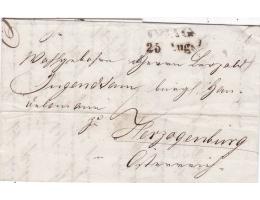 25 Aug:
Wohlgebohrn Herrn Leopold
bürgl. Han-
delsmann
zu
Herzogenburg
Österreich